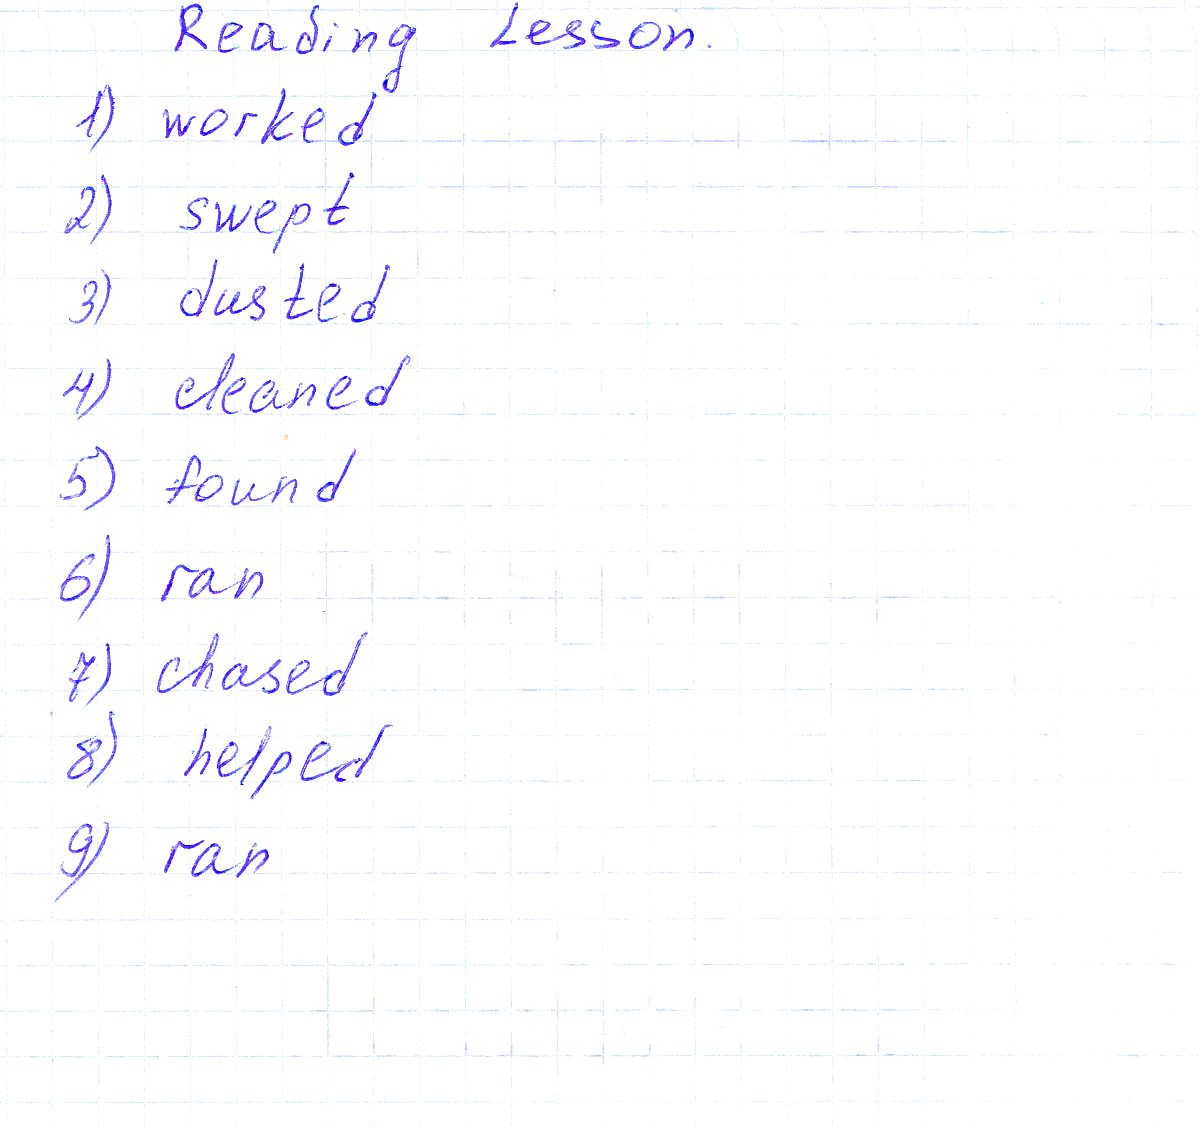 Reading Lesson.
1) worked
2) swept
3) dusted
4) cleaned
5) found
6) ran
7) chased
8) helped
9) ran